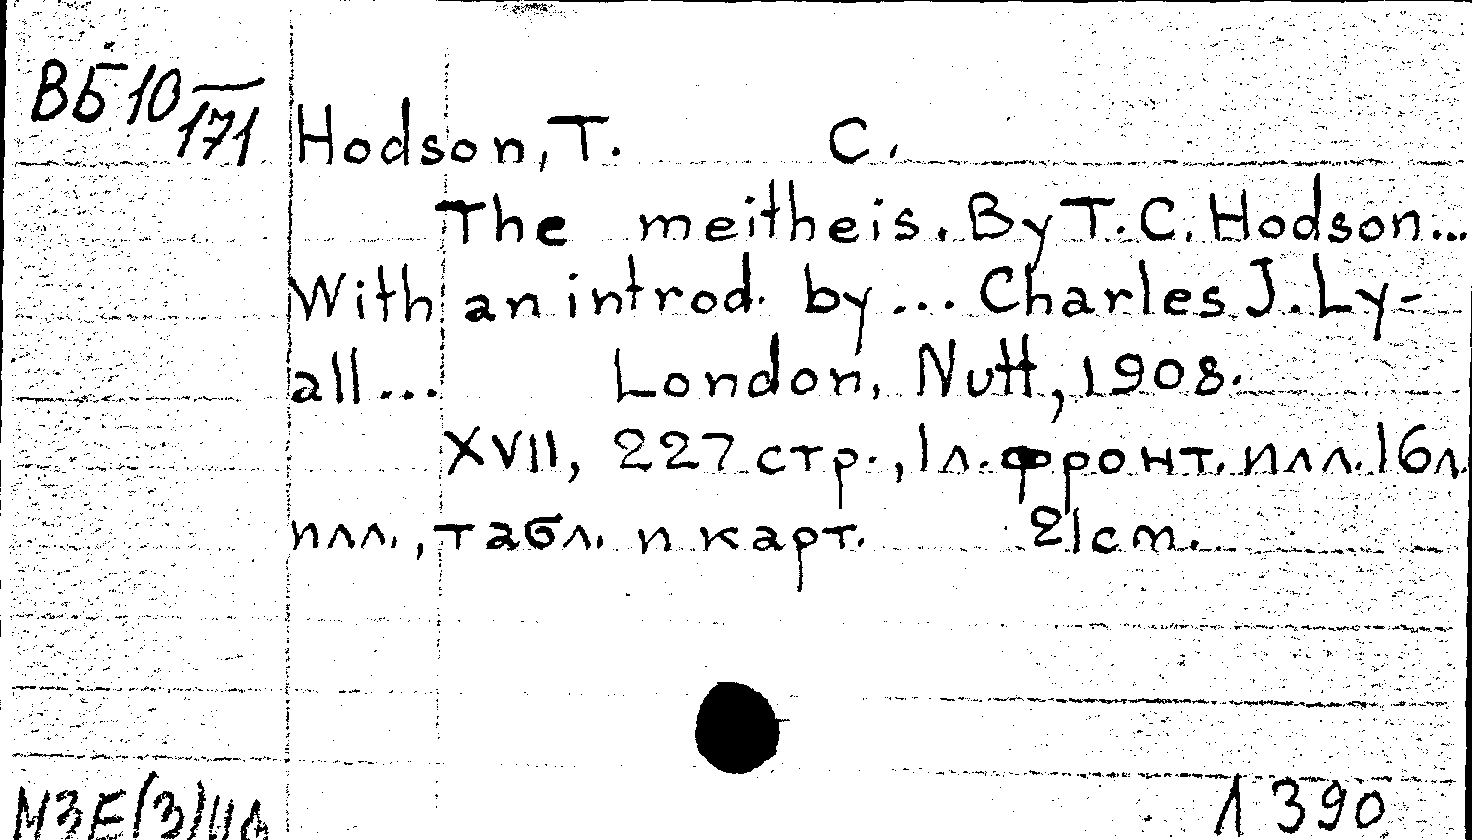 ВБ 10/171
Hodson, T. C.
The meitheis. By T. C. Hodson...
With an introd. by ... Charles J. Ly-
all... London, Nutt, 1908.
XVII, 227 стр., 1 л. фронт. илл. 16 л.
илл., табл. и карт. 21 cm.
Л 390